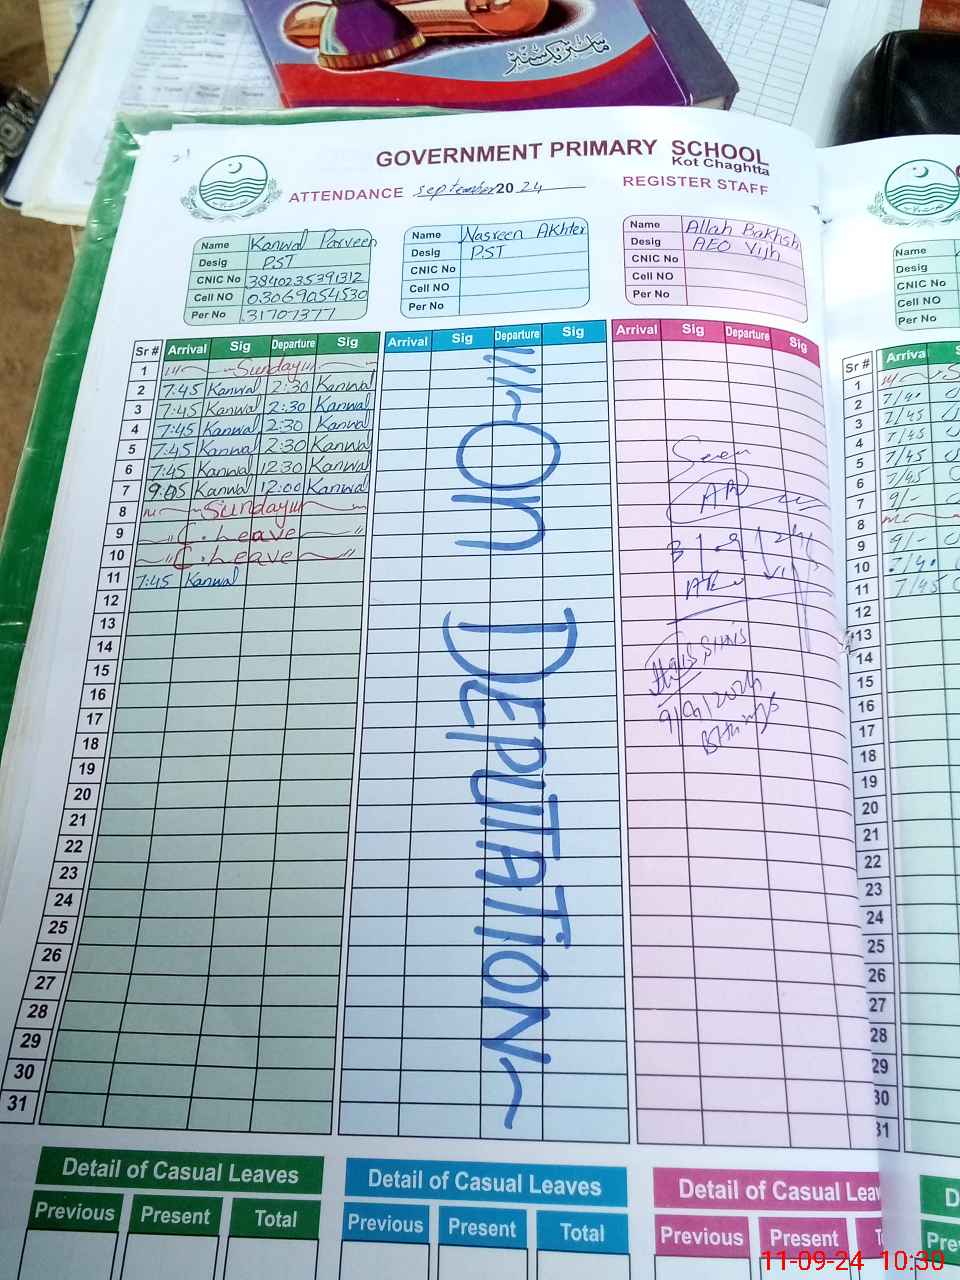 ماسٹر بک سنٹر
GOVERNMENT PRIMARY SCHOOL
Kot Chaghtta
ATTENDANCE September 20 24 REGISTER STAFF
Name Kanwal Parveen
Desig PST
CNIC No 3840235391312
Cell NO 03069054530
Per No 31707377
Name Nasreen Akhter
Desig PST
CNIC No
Cell NO
Per No
Name Allah Bakhsh
Desig AEO Vijh
CNIC No
Cell NO
Per No
Name
Desig
CNIC No
Cell NO
Per No
Sr # Arrival Sig Departure Sig Arrival Sig Departure Sig Arrival Sig Departure Sig
1 Sunday
2 7:45 Kanwal 2:30 Kanwal
3 7:45 Kanwal 2:30 Kanwal
4 7:45 Kanwal 2:30 Kanwal
5 7:45 Kanwal 2:30 Kanwal
6 7:45 Kanwal 12:30 Kanwal
7 9:05 Kanwal 12:00 Kanwal
8 Sunday
9 C.Leave
10 C.Leave
11 7:45 Kanwal
12
13
14
15
16
17
18
19
20
21
22
23
24
25
26
27
28
29
30
31
ON DEPUTATION
Seen
9/9/2024
Sr # Arrival
1
2 7/40
3 7/45
4 7/45
5 7/45
6 7/45
7 9/-
8
9 9/-
10 7/40
11 7/45
12
13
14
15
16
17
18
19
20
21
22
23
24
25
26
27
28
29
30
31
Detail of Casual Leaves
Previous Present Total
Detail of Casual Leaves
Previous Present Total
Detail of Casual Leav
Previous Present T
D
Pre
11-09-24 10:30